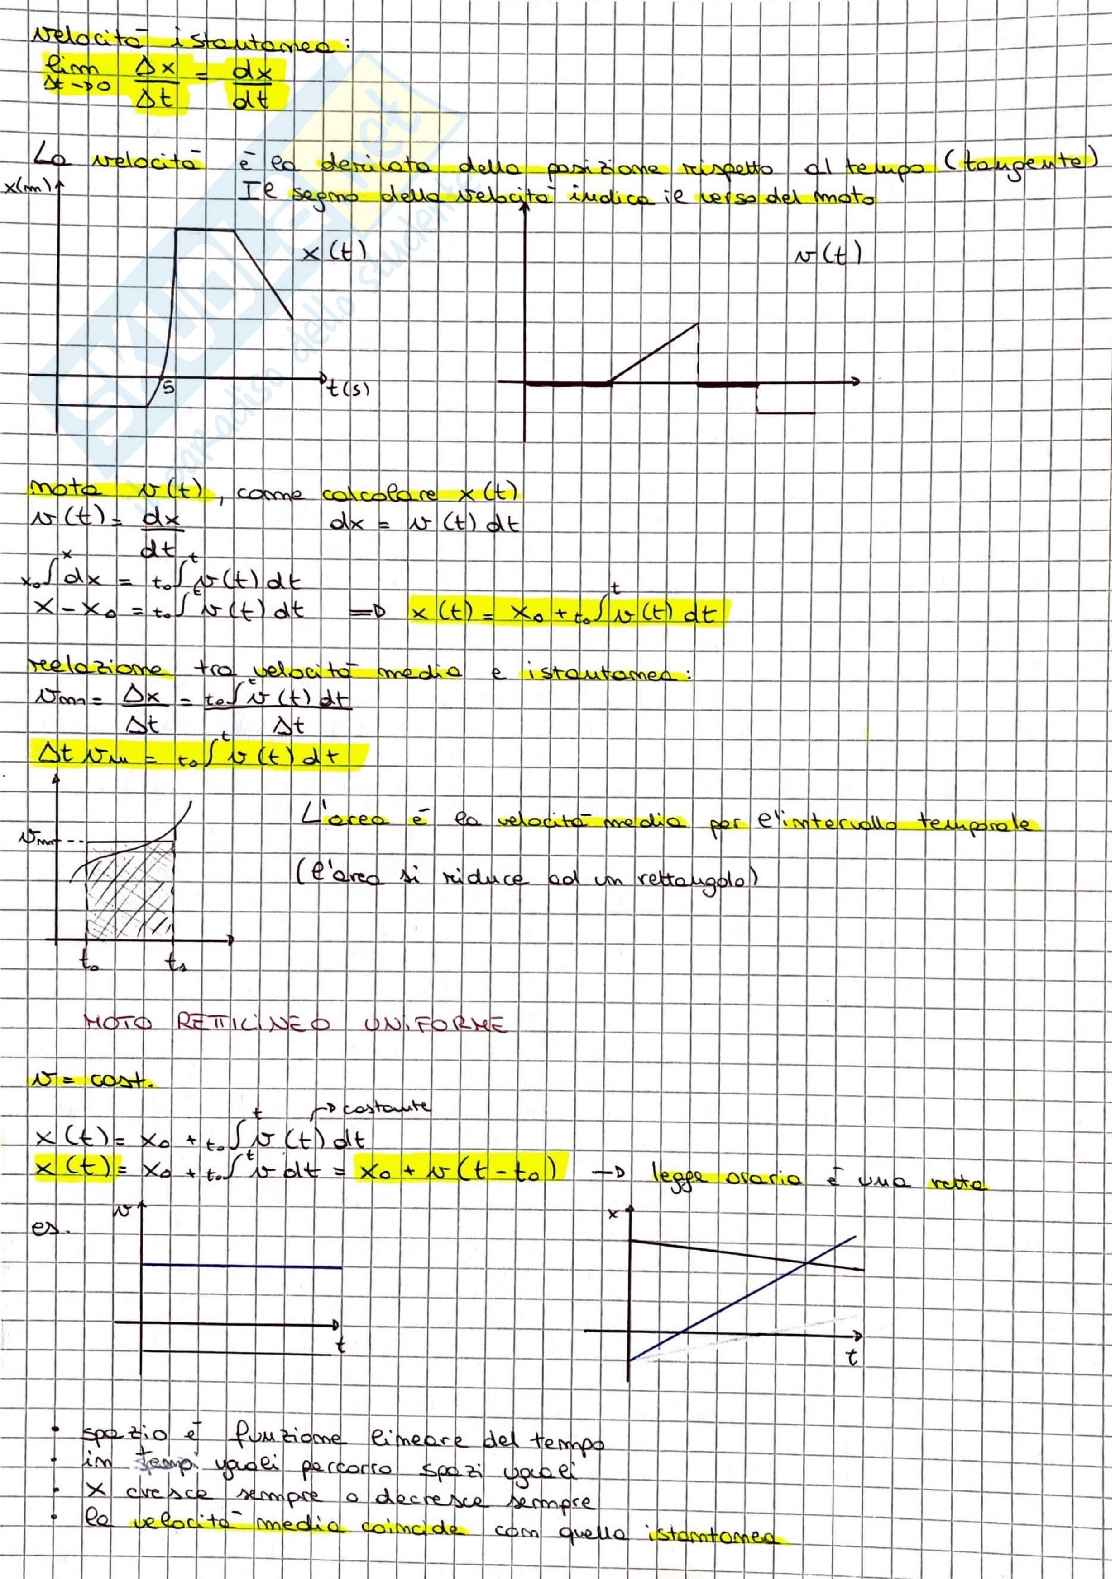 velocità istantanea:
lim Δx/Δt = dx/dt
Δt→0
La velocità è la derivata della posizione rispetto al tempo (tangente)
Il segno della velocità indica il verso del moto
x(m)
x(t)
v(t)
5
t(s)
nota v(t), come calcolare x(t)
v(t) = dx/dt dx = v(t) dt
x₀∫ˣ dx = t₀∫ᵗ v(t) dt
x - x₀ = t₀∫ᵗ v(t) dt ⇒ x(t) = x₀ + t₀∫ᵗ v(t) dt
relazione tra velocità media e istantanea:
vm = Δx/Δt = t₀∫ᵗ v(t) dt/Δt
Δt vm = t₀∫ᵗ v(t) dt
L'area è la velocità media per l'intervallo temporale
vm
(l'area si riduce ad un rettangolo)
t₀ t₁
MOTO RETTILINEO UNIFORME
v = cost.
→ costante
x(t) = x₀ + t₀∫ᵗ v(t) dt
x(t) = x₀ + t₀∫ᵗ v dt = x₀ + v(t-t₀) → legge oraria è una retta
es.
v
x
t
t
• spazio è funzione lineare del tempo
• in tempi uguali percorro spazi uguali
• x cresce sempre o decresce sempre
• la velocità media coincide con quella istantanea
SKUOLA.net
paradiso dello studente